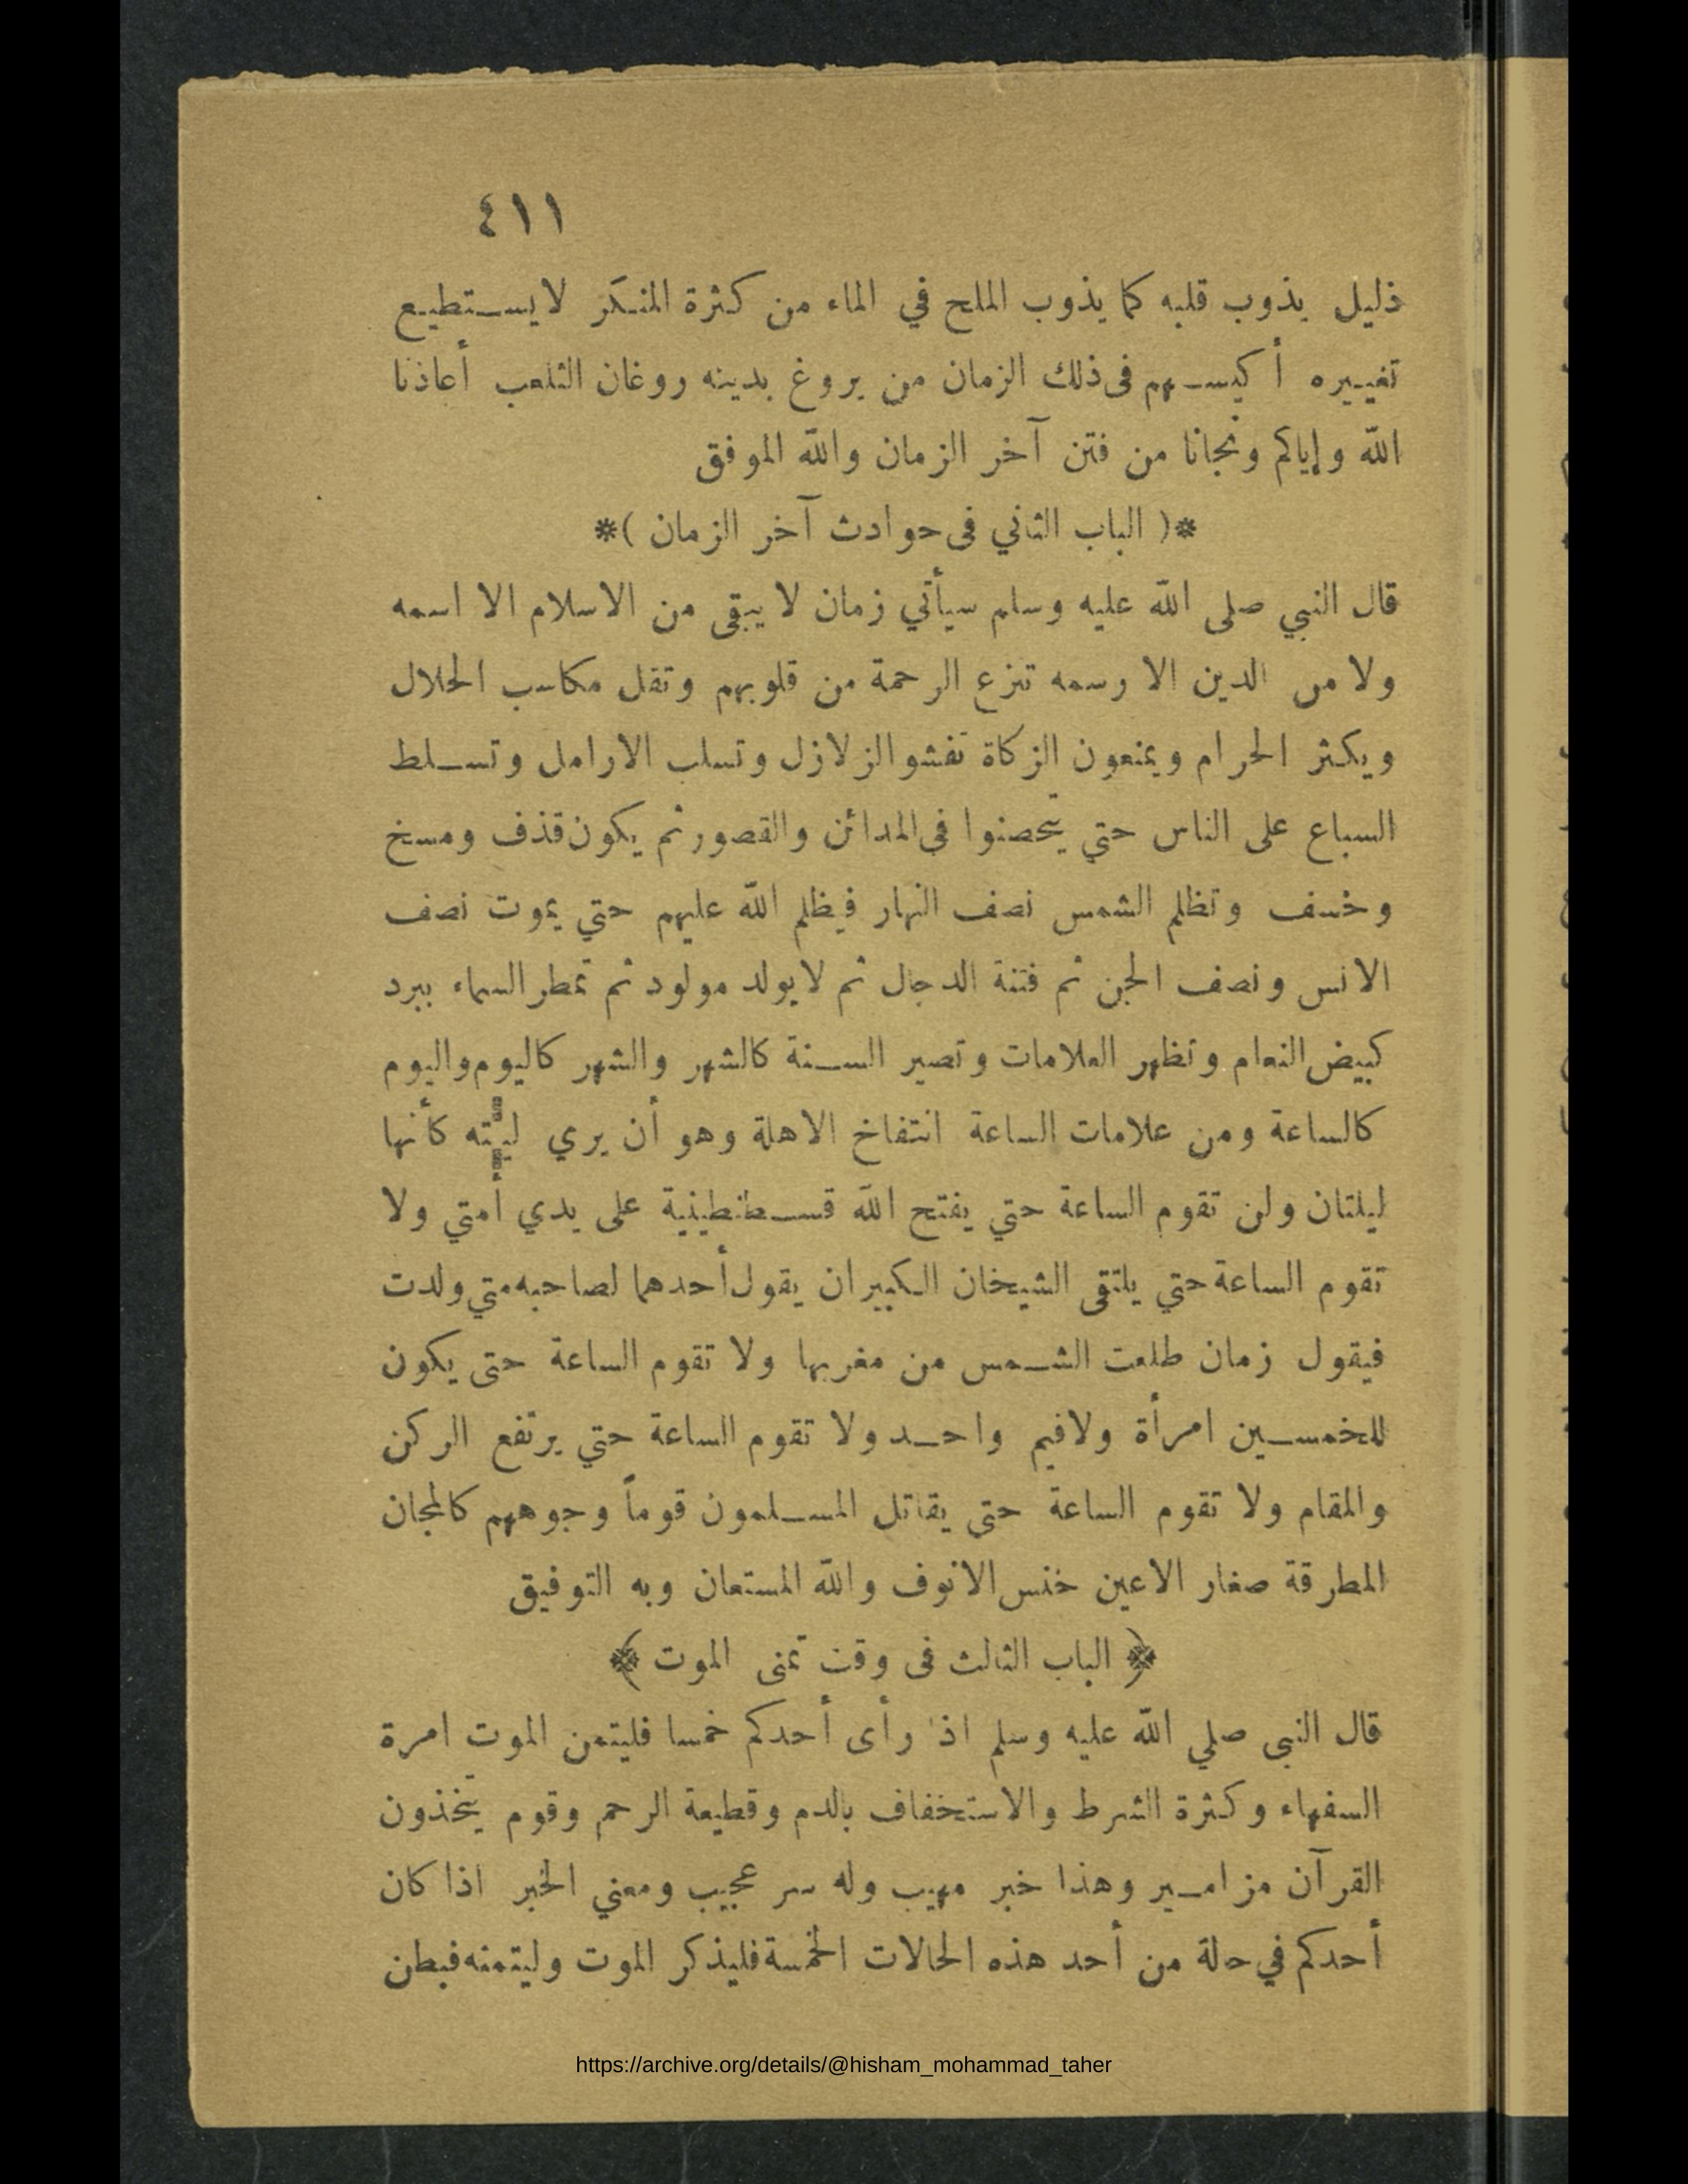 ٤١١
ذليل يذوب قلبه كما يذوب الملح في الماء من كثرة المنكر لا يستطيع
تغييره أكيسهم فى ذلك الزمان من يروغ بدينه روغان الثلعب أعاذنا
الله وإياكم ونجانا من فتن آخر الزمان والله الموفق
*( الباب الثاني فى حوادث آخر الزمان )*
قال النبي صلى الله عليه وسلم سيأتي زمان لا يبقى من الاسلام الا اسمه
ولا من الدين الا رسمه تنزع الرحمة من قلوبهم وتقل مكاسب الحلال
ويكثر الحرام ويمنعون الزكاة تفشو الزلازل وتسلب الارامل وتسلط
السباع على الناس حتي يتحصنوا فى المدائن والقصور ثم يكون قذف ومسخ
وخسف وتظلم الشمس نصف النهار فيظلم الله عليهم حتي يموت نصف
الانس ونصف الجن ثم فتنة الدجال ثم لا يولد مولود ثم تمطر السماء ببرد
كبيض النعام وتظهر العلامات وتصير السنة كالشهر والشهر كاليوم واليوم
كالساعة ومن علامات الساعة انتفاخ الاهلة وهو أن يري كأنها
ليلتان ولن تقوم الساعة حتي يفتح الله قسطنطينية على يدي أمتي ولا
تقوم الساعة حتي يلتقى الشيخان الكبيران يقول أحدهما لصاحبه متي ولدت
فيقول زمان طلعت الشمس من مغربها ولا تقوم الساعة حتى يكون
للخمسين امرأة ولا فيم واحد ولا تقوم الساعة حتي يرتفع الركن
والمقام ولا تقوم الساعة حتى يقاتل المسلمون قوماً وجوههم كالمجان
المطرقة صغار الاعين خنس الانوف والله المستعان وبه التوفيق
﴿ الباب الثالث فى وقت تمنى الموت ﴾
قال النبى صلي الله عليه وسلم اذا رأى أحدكم خمسا فليتمن الموت امرة
السفهاء وكثرة الشرط والاستخفاف بالدم وقطيعة الرحم وقوم يتخذون
القرآن مزامير وهذا خبر مهيب وله سر عجيب ومعني الخبر اذا كان
أحدكم في حلة من أحد هذه الحالات الخمسة فليذكر الموت وليتمنه فبطن
https://archive.org/details/@hisham_mohammad_taher